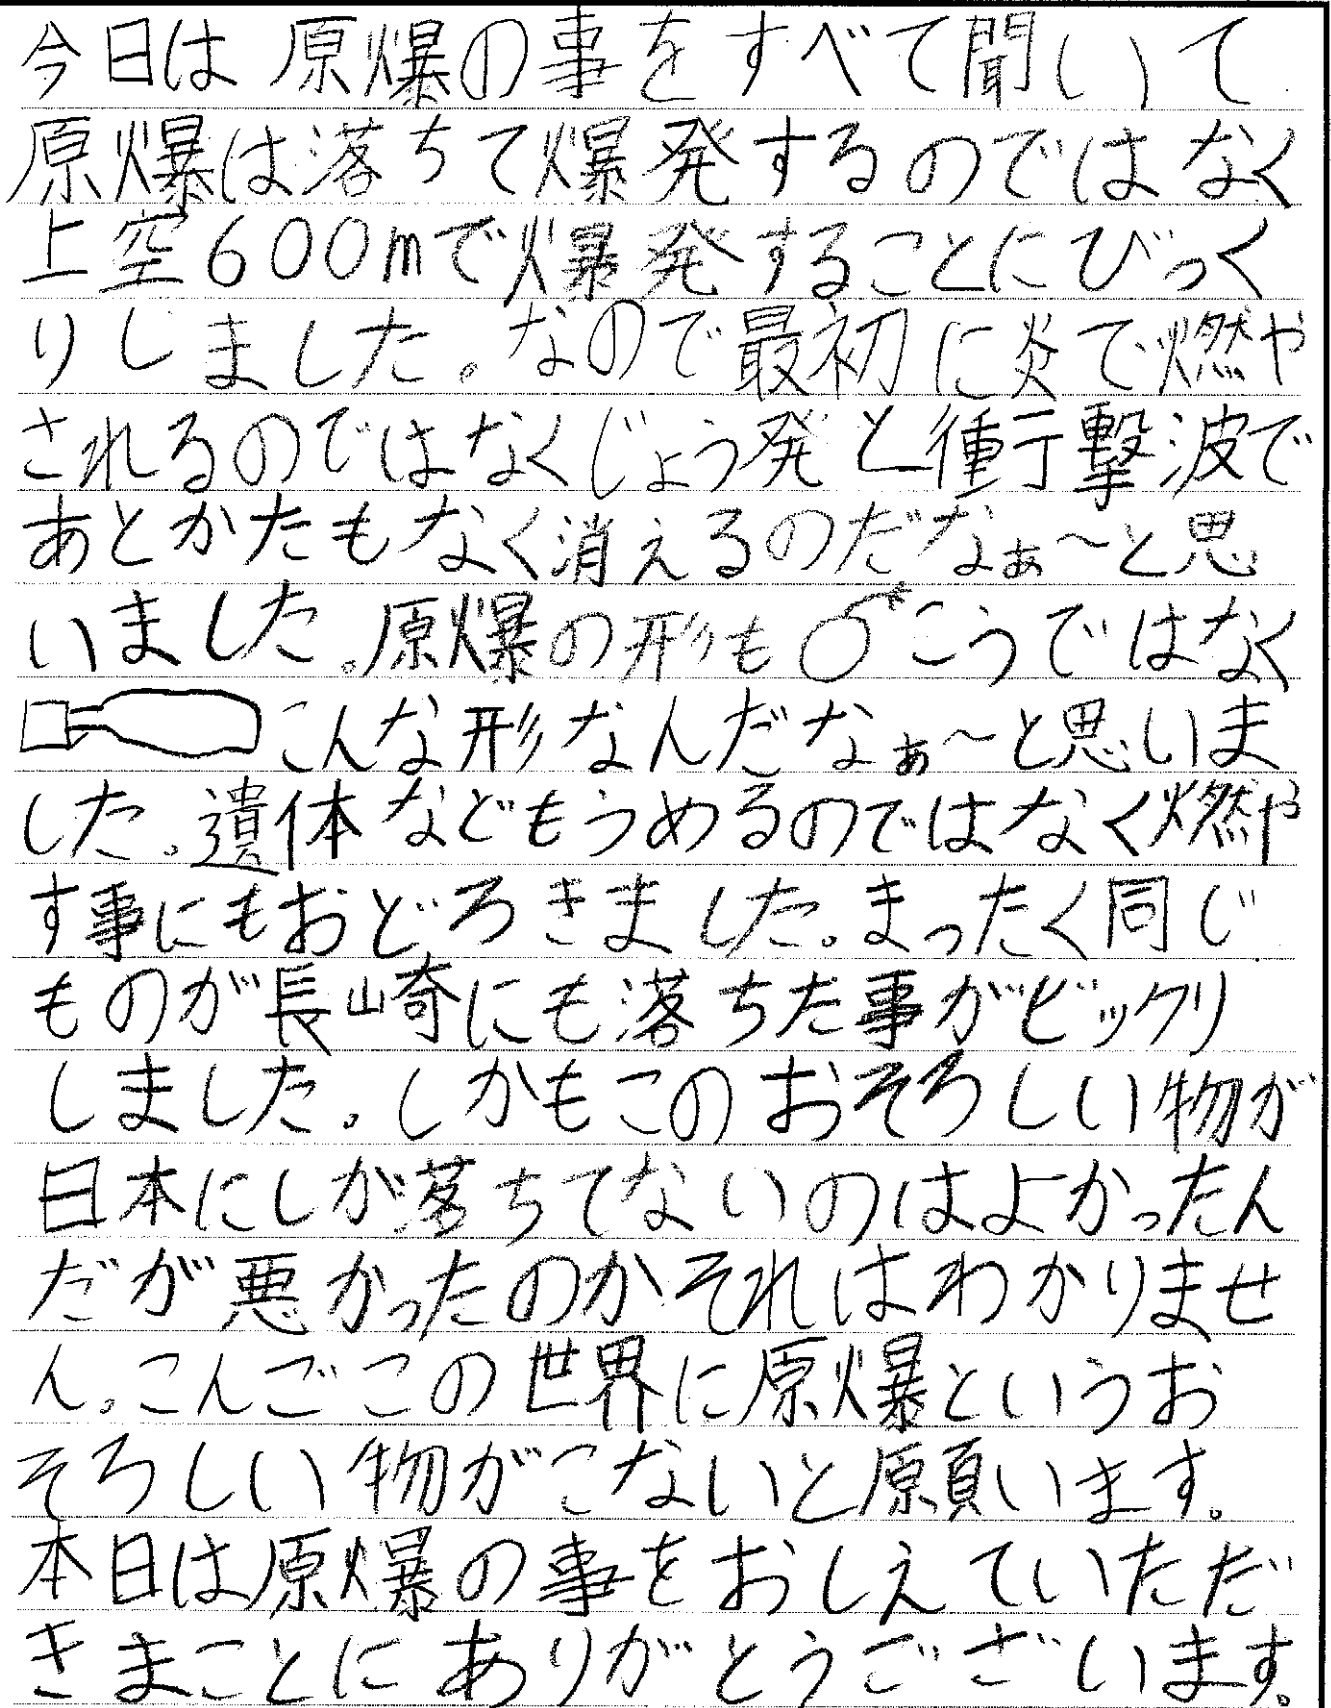 今日は原爆の事をすべて聞いて
原爆は落ちて爆発するのではなく
上空600mで爆発することにびっく
りしました。なので最初に炎で燃や
されるのではなくじょう発と衝撃波で
あとかたもなく消えるのだなぁ～と思
いました。原爆の形もこうではなく
こんな形なんだなぁ～と思いま
した。遺体などもうめるのではなく燃や
す事にもおどろきました。まったく同じ
ものが長崎にも落ちた事がビックリ
しました。しかもこのおそろしい物が
日本にしか落ちてないのはよかったん
だが悪かったのかそれはわかりませ
ん。こんごこの世界に原爆というお
そろしい物がこないと願います。
本日は原爆の事をおしえていただ
きまことにありがとうございます。